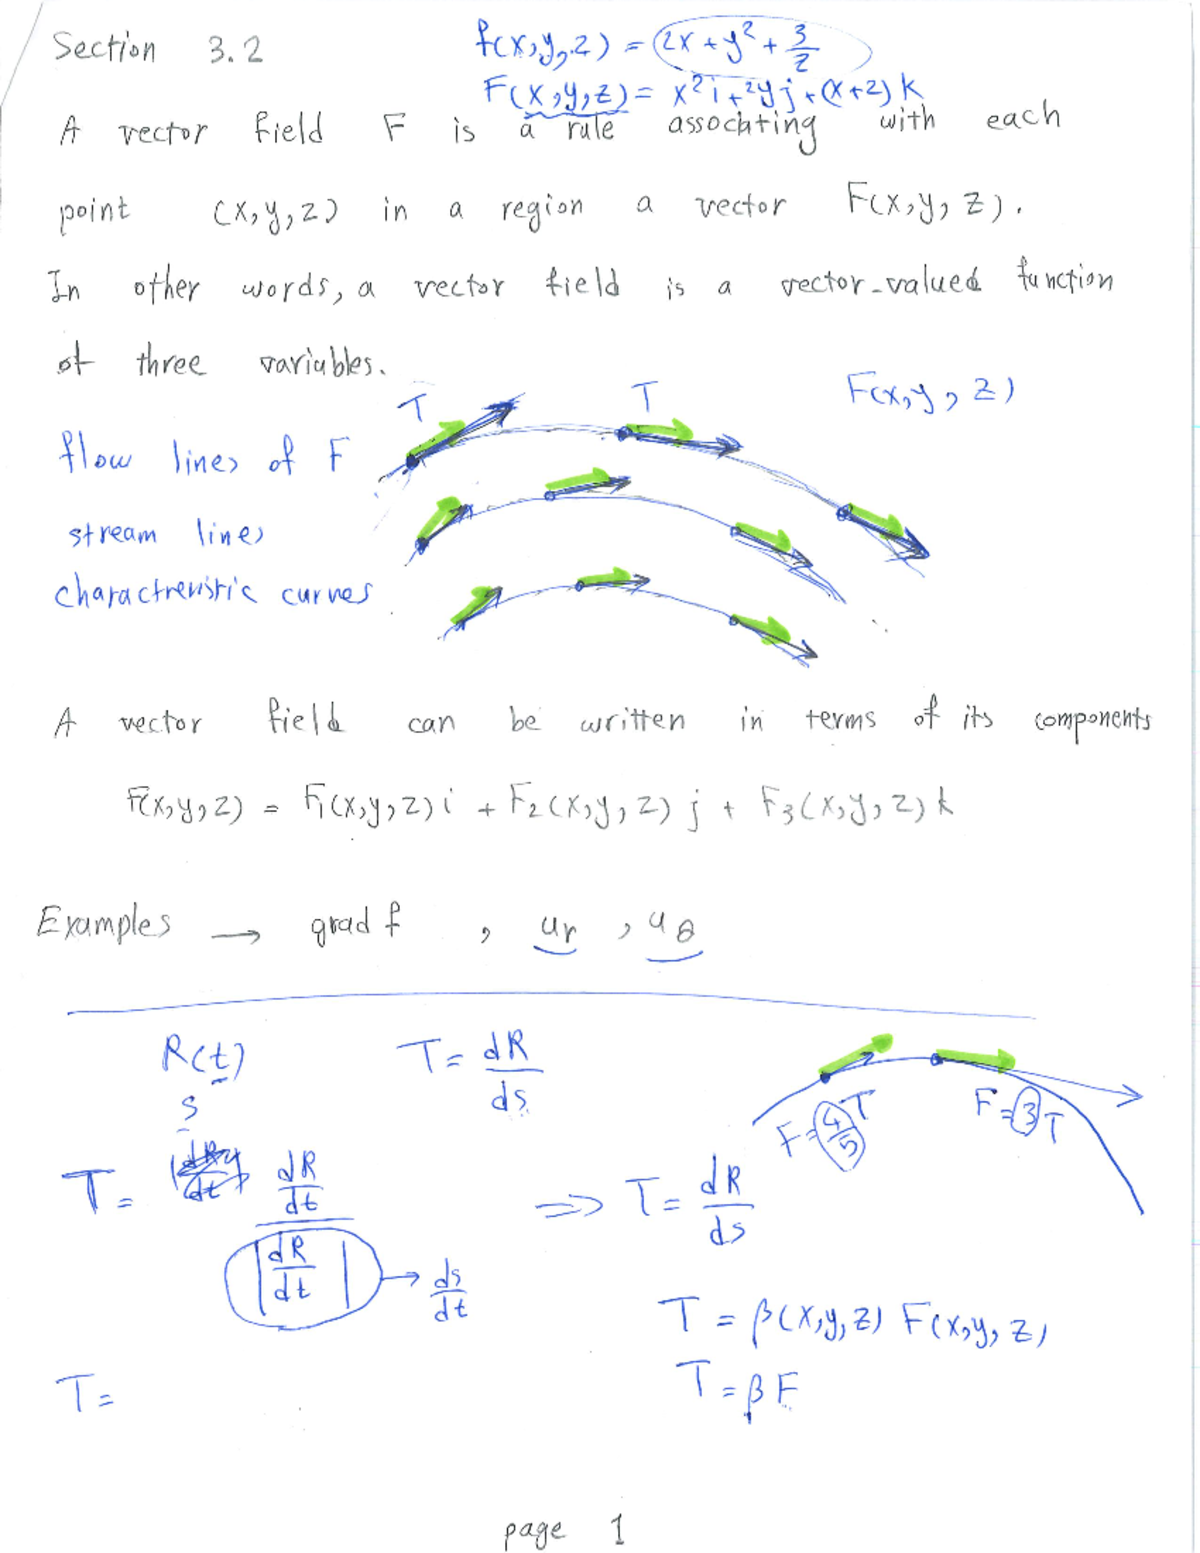 Section 3.2
f(x,y,z) = 2x + y² + 3/z
F(x,y,z) = x² i + 2y j + (x+z) k
A vector field F is a rule associating with each
point (x,y,z) in a region a vector F(x,y,z).
In other words, a vector field is a vector-valued function
of three variables.
T T F(x,y,z)
flow lines of F
stream lines
charactrewistic curves
A vector field can be written in terms of its components
F(x,y,z) = F₁(x,y,z) i + F₂(x,y,z) j + F₃(x,y,z) k
Examples → grad f , ur , uθ
R(t) T = dR/ds
s
F = 4/5 T F = 3 T
T = (dR/dt) / |dR/dt| → ds/dt ⇒ T = dR/ds
T = β(x,y,z) F(x,y,z)
T = β F
T =
page 1